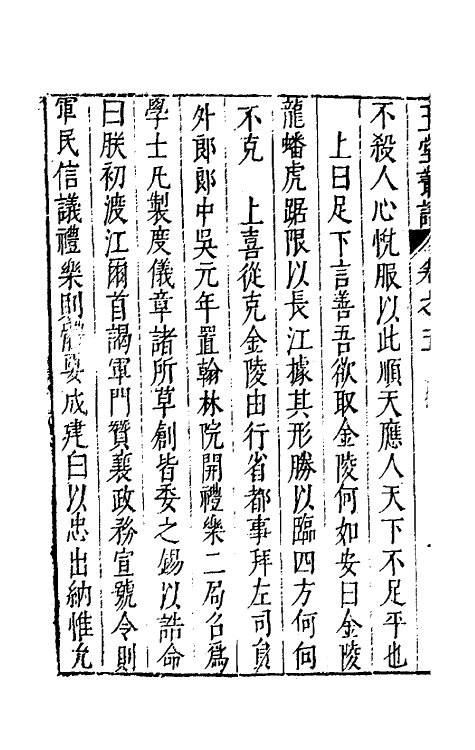 玉堂叢語 卷之五
不殺人心悅服以此順天應人天下不足平也
上曰足下言善吾欲取金陵何如安曰金陵
龍蟠虎踞限以長江據其形勝以臨四方何向
不克 上喜從克金陵由行省都事拜左司員
外郎郎中吳元年置翰林院開禮樂二局召為
學士凡製度儀章諸所草創皆委之錫以誥命
曰朕初渡江爾首謁軍門贊襄政務宣號令則
軍民信議禮樂則體要成建白以忠出納惟允